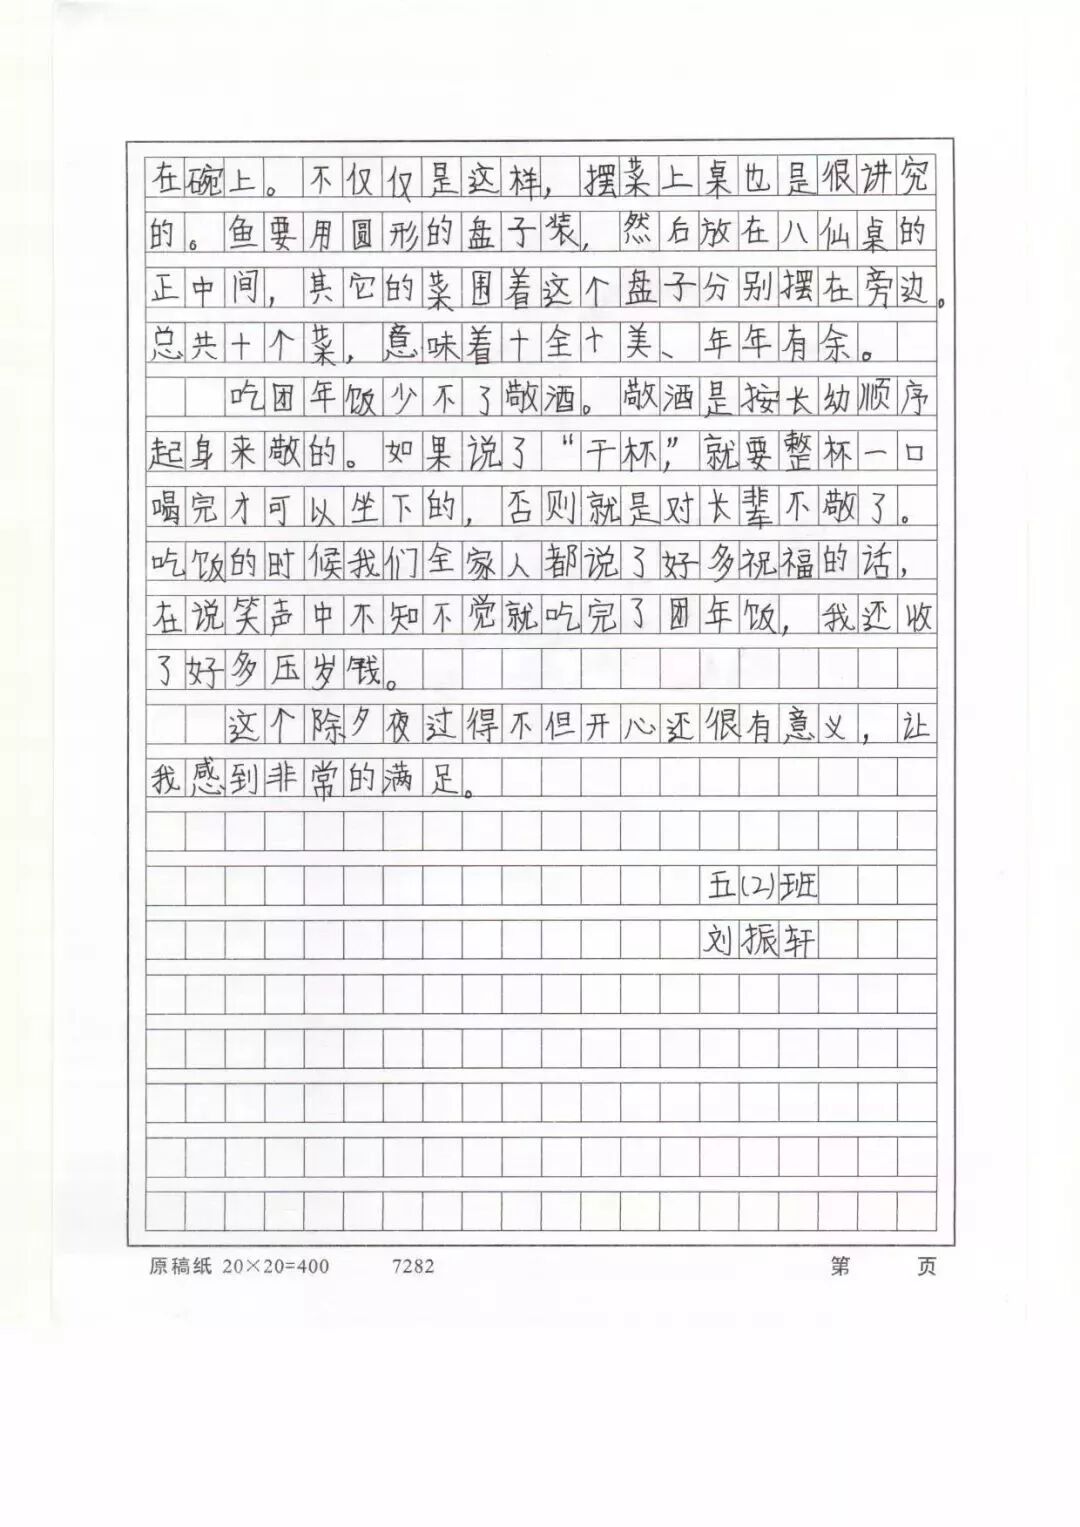 在碗上。不仅仅是这样，摆菜上桌也是很讲究
的。鱼要用圆形的盘子装，然后放在八仙桌的
正中间，其它的菜围着这个盘子分别摆在旁边。
总共十个菜，意味着十全十美、年年有余。
吃团年饭少不了敬酒。敬酒是按长幼顺序
起身来敬的。如果说了“干杯”，就要整杯一口
喝完才可以坐下的，否则就是对长辈不敬了。
吃饭的时候我们全家人都说了好多祝福的话，
在说笑声中不知不觉就吃完了团年饭，我还收
了好多压岁钱。
这个除夕夜过得不但开心还很有意义，让
我感到非常的满足。
五(2)班
刘振轩
原稿纸 20×20=400 7282 第 页